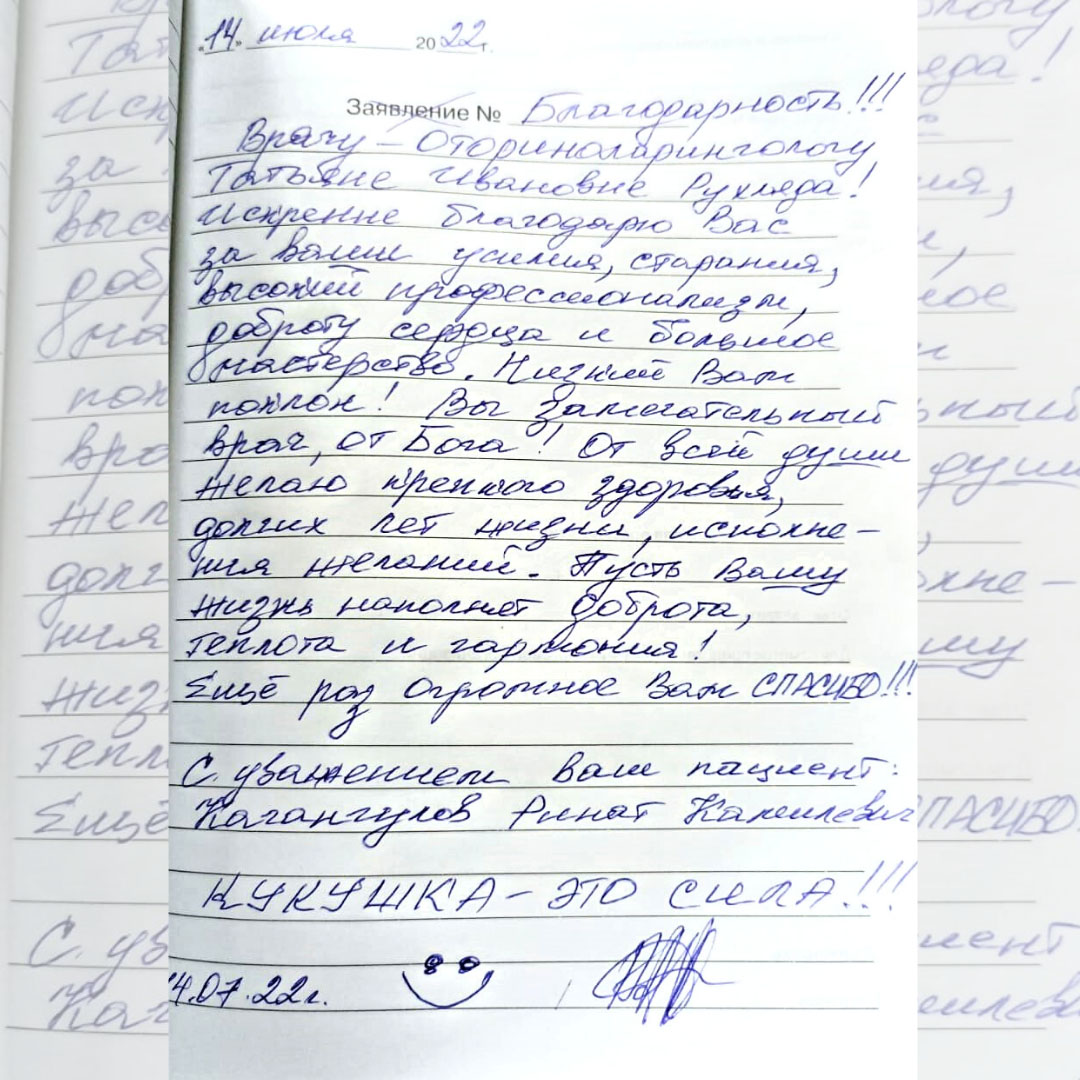 «14» июля 2022г.
Заявление № Благодарность!!!
Врачу - Оториноларингологу
Татьяне Ивановне Рухляда!
Искренне благодарю Вас
за ваши усилия, старания,
высокий профессионализм,
доброту сердца и большое
мастерство. Низкий Вам
поклон! Вы замечательный
врач, от Бога! От всей души
желаю крепкого здоровья,
долгих лет жизни, исполне-
ния желаний. Пусть Вашу
жизнь наполняет доброта,
теплота и гармония!
Ещё раз огромное Вам СПАСИБО!!!
С уважением ваш пациент:
Ринат Камилевич
КУКУШКА - ЭТО СИЛА!!!
14.07.22г.